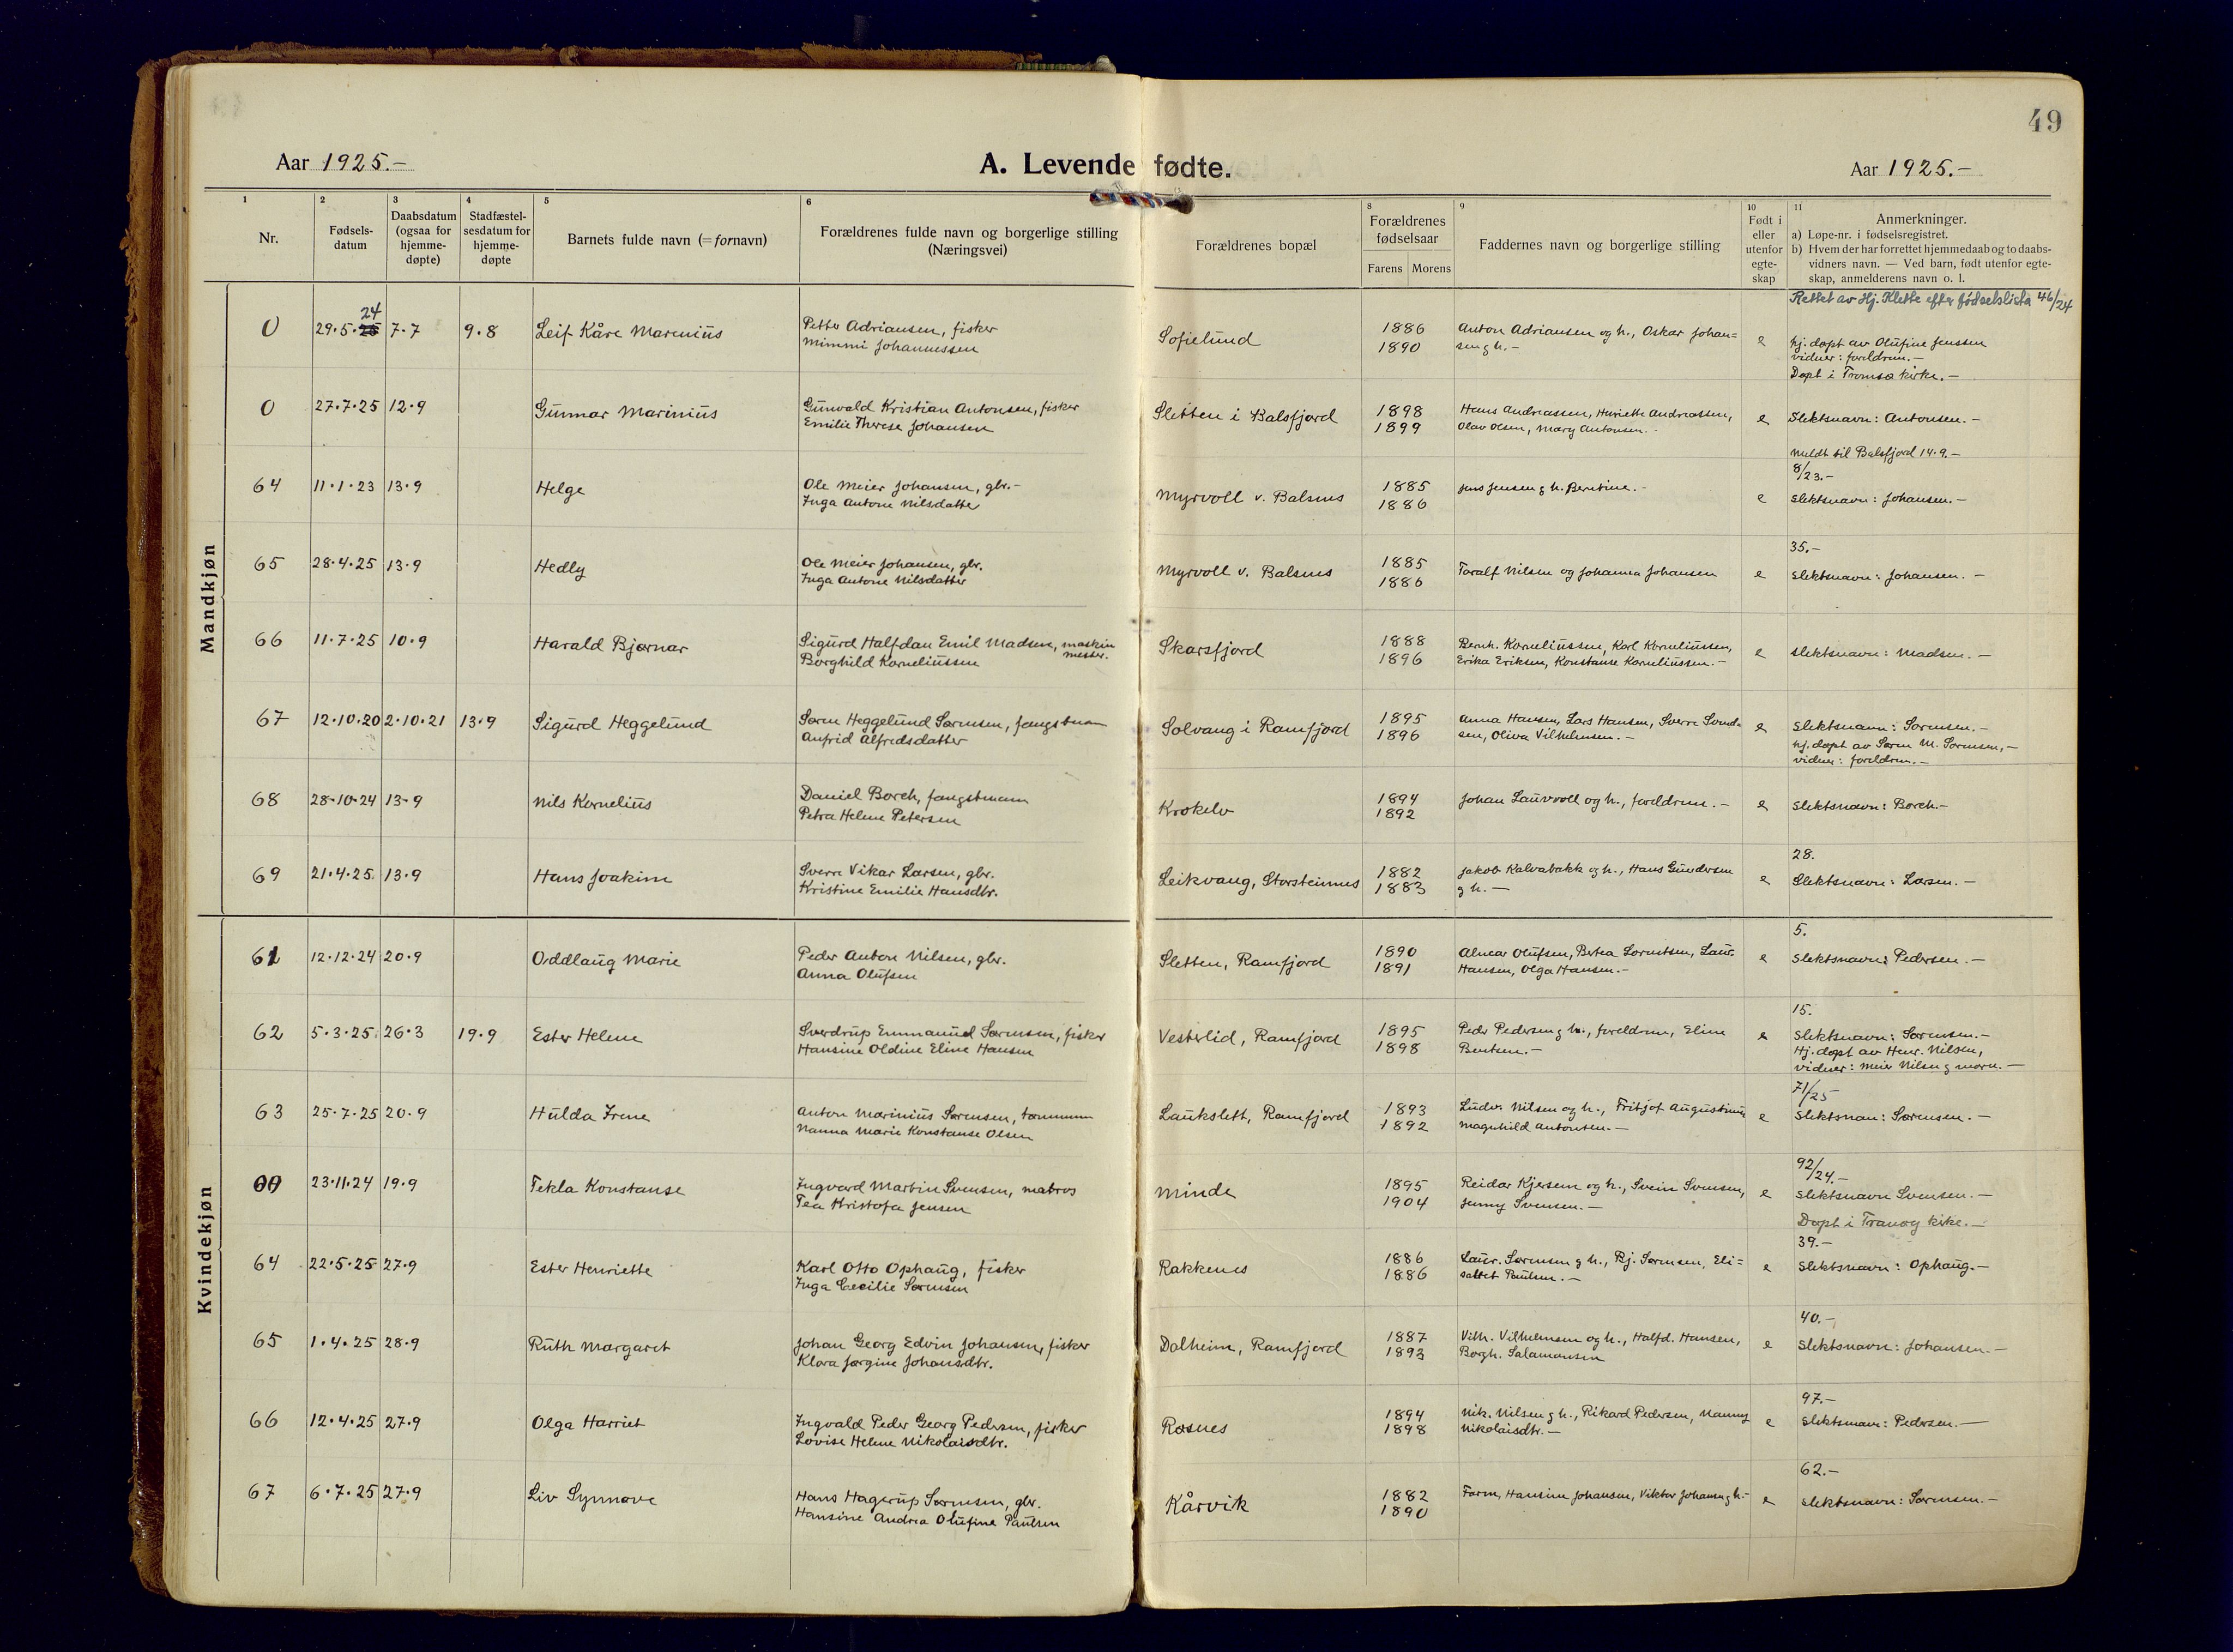 49
Aar 1925.-
A. Levende fødte.
Aar 1925.-
1 2 3 4 5 6 8 9 10 11
Nr.
Fødsels-
datum
Daabsdatum
(ogsaa for
hjemme-
døpte)
Stadfæstel-
sesdatum for
hjemme-
døpte
Barnets fulde navn (=fornavn)
Forældrenes fulde navn og borgerlige stilling
(Næringsvei)
Forældrenes bopæl
Forældrenes
fødselsaar
Farens Morens
Faddernes navn og borgerlige stilling
Født i
eller
utenfor
egte-
skap
Anmerkninger.
a) Løpe-nr. i fødselsregistret.
b) Hvem der har forrettet hjemmedaab og to daabs-
vidners navn. — Ved barn, født utenfor egte-
skap, anmelderens navn o. l.
Mandkjøn
Rettet av Hj. Klette efter fødselslista 46/24
24
0 29.5.25 7.7 9.8 Leif Kåre Marenius Petter Adriansen, fisker Sofielund 1886 Anton Adriansen og h., Oskar Johan= e hj. døpt av Olufine Jenssen
Mimmi Johannessen 1890 sen g h.- vidner: foreldren.-
Døpt i Tromsø kirke.-
0 27.7.25 12.9 Gunnar Marinius Gunvald Kristian Antonsen, fisker Sletten i Balsfjord 1898 Hans Andreassen, Henriette Andreassen, e Slektsnavn: Antonsen.-
Emilie Therese Johansen 1899 Olav Olsen, Mary Antonsen.-
Meldt til Balsfjord 14.9.-
8/23.-
64 11.1.23 13.9 Helge Ole Meier Johansen, gbr.- Myrvoll v. Balsnes 1885 Jens Jensen g h. Berntine.- e Slektsnavn: Johansen.-
Inga Antone Nilsdatter 1886
35.-
65 28.4.25 13.9 Hedly Ole Meier Johansen, gbr. Myrvoll v. Balsnes 1885 Toralf Nilsen og Johanna Johansen e Slektsnavn: Johansen.-
Inga Antone Nilsdatter 1886
66 11.7.25 10.9 Harald Bjørnar Sigurd Halfdan Emil Madsen, maskin Skarsfjord 1888 Bernh. Korneliussen, Karl Korneliussen, e Slektsnavn: Madsen.-
mester.
Borghild Korneliussen 1896 Erika Eriksen, Konstanse Korneliussen.-
67 12.10.20 2.10.21 13.9 Sigurd Heggelund Søren Heggelund Sørensen, fangstman Solvang i Ramfjord 1895 Anna Hansen, Lars Hansen, Sverre Svend- e Slektsnavn: Sørensen.-
Anfrid Alfredsdatter 1896 sen, Oliva Vilhelmsen.- hj. døpt av Søren M. Sørensen,-
vidner: foreldren.-
68 28.10.24 13.9 Nils Kornelius Daniel Borch, fangstmann Krokelv 1894 Johan Lauvvoll og h., foreldren.- e Slektsnavn: Borch.-
Petra Helene Petersen 1892
28.
69 21.4.25 13.9 Hans Joakim Sverre Vikar Larsen, gbr. Leikvang, Storsteinnes 1882 Jakob Kalvabakk og h., Hans Gundersen e Slektsnavn: Larsen.-
Kristine Emilie Hansdtr. 1883 g h.-
Kvindekjøn
5.
61 12.12.24 20.9 Oddlaug Marie Peder Anton Nilsen, gbr. Sletten, Ramfjord 1890 Almar Olufsen, Betea Lorentsen, Laur. e Slektsnavn: Pedersen.-
Anna Olufsen 1891 Hansen, Olga Hansen.-
15.
62 5.3.25 26.3 19.9 Ester Helene Sverdrup Emmanuel Sørensen, fisker Vesterlid, Ramfjord 1895 Peder Pedersen g h., foreldren, Eline e Slektsnavn: Sørensen.-
Hansine Oldine Eline Hansen 1898 Bentsen.- Hj. døpt av Henr. Nilsen,
vidner: Meier Nilsen g moren.-
71/25
63 25.7.25 20.9 Hulda Irene Anton Marinius Sørensen, tømmerm Laukslett, Ramfjord 1893 Ludv. Nilsen og h., Fritjof Augustinus e Slektsnan: Sørensen.-
Nanna Marie Konstanse Olsen 1892 Magnhild Antonsen.-
92/24.-
00 23.11.24 19.9 Tekla Konstanse Ingvard Martin Svensen, matros Minde 1895 Reidar Kjersem og h., Svein Svensen, e Slektsnavn Svensen.-
Tea Kristofa Jensen 1904 Jenny Svensen.-
Døpt i Tranøy kirke.-
39.-
64 22.5.25 27.9 Ester Henriette Karl Otto Ophaug, fisker Rakkenes 1886 Laur. Sørensen g h., Bj. Sørensen, Eli= e Slektsnavn: Ophaug.-
Inga Cecilie Sørensen 1886 sabet Paulsen.-
40.-
65 1.4.25 28.9 Ruth Margaret Johan Georg Edvin Johansen, fisker Dalheim, Ramfjord 1887 Vilh. Vilhelmsen og h., Halfd. Hansen, e Slektsnavn: Johansen.-
Klara Jørgine Johansdtr. 1893 Borgh. Salamonsen
97.-
66 12.4.25 27.9 Olga Harriet Ingvald Peder Georg Pedersen, fisker Røsnes 1894 Nik. Nilsen g h., Rikard Pedersen, Nanny e Slektsnavn: Pedersen.-
Lovise Helene Nikolaisdtr. 1898 Nikolaisdtr.-
62.-
67 6.7.25 27.9 Liv Synnøve Hans Hagerup Sørensen, gbr. Kårvik 1882 Faren, Hansine Johansen, Viktor Johansen g h.- e Slektsnavn: Sørensen.-
Hansine Andrea Olufine Paulsen 1890